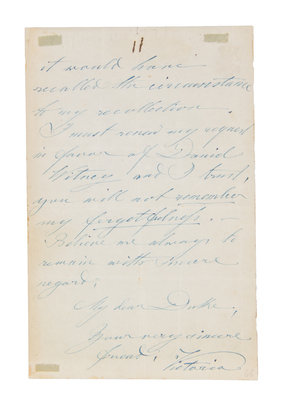 11
it would have
recalled the circumstance
to my recollection.
I must renew my request
in favor of David
Witney and I trust,
you will not remember
my forgetfulness. —
Believe me always to
remain with sincere
regard,
My dear Duke,
Your very sincere
friend, Victoria